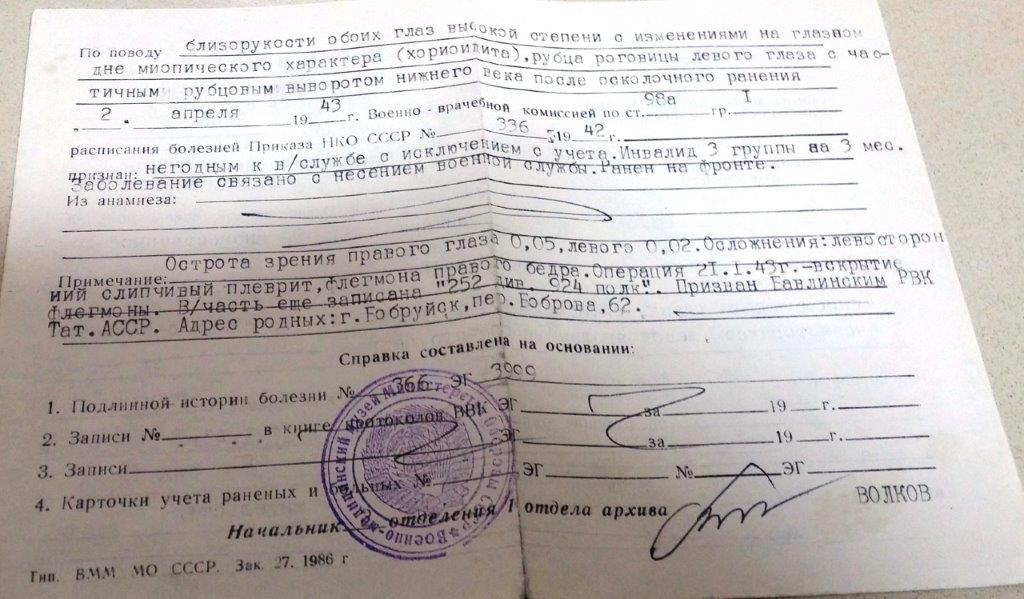 По поводу близорукости обоих глаз высокой степени с изменениями на глазном
дне миопического характера (хориоидита),рубца роговицы левого глаза с час-
тичным рубцовым выворотом нижнего века после осколочного ранения
„ 2 „ апреля 1943 г. Военно-врачебной комиссией по ст. 98а гр. I
расписания болезней Приказа НКО СССР № 336 1942 г.
признан: негодным к в/службе с исключением с учета.Инвалид 3 группы на 3 мес.
Заболевание связано с несением военной службы.Ранен на фронте.
Из анамнеза:
Острота зрения правого глаза 0,05,левого 0,02.Осложнения:левосторон
Примечание:
ний слипчивый плеврит,флегмона правого бедра.Операция 21.I.43г.-вскрытие
флегмоны. В/часть еще записана "252 див. 924 полк". Призван Бавлинским РВК
Тат.АССР. Адрес родных:г.Бобруйск,пер.Боброва,62.
Справка составлена на основании:
1. Подлинной истории болезни № 366 ЭГ 3999
2. Записи № в книге протоколов ВВК ЭГ за 19 г.
3. Записи ЭГ за 19 г.
4. Карточки учета раненых и больных № ЭГ № ЭГ
Начальник отделения 1 отдела архива ВОЛКОВ
Военно-медицинский музей Министерства обороны СССР
Тип. ВММ МО СССР. Зак. 27. 1986 г